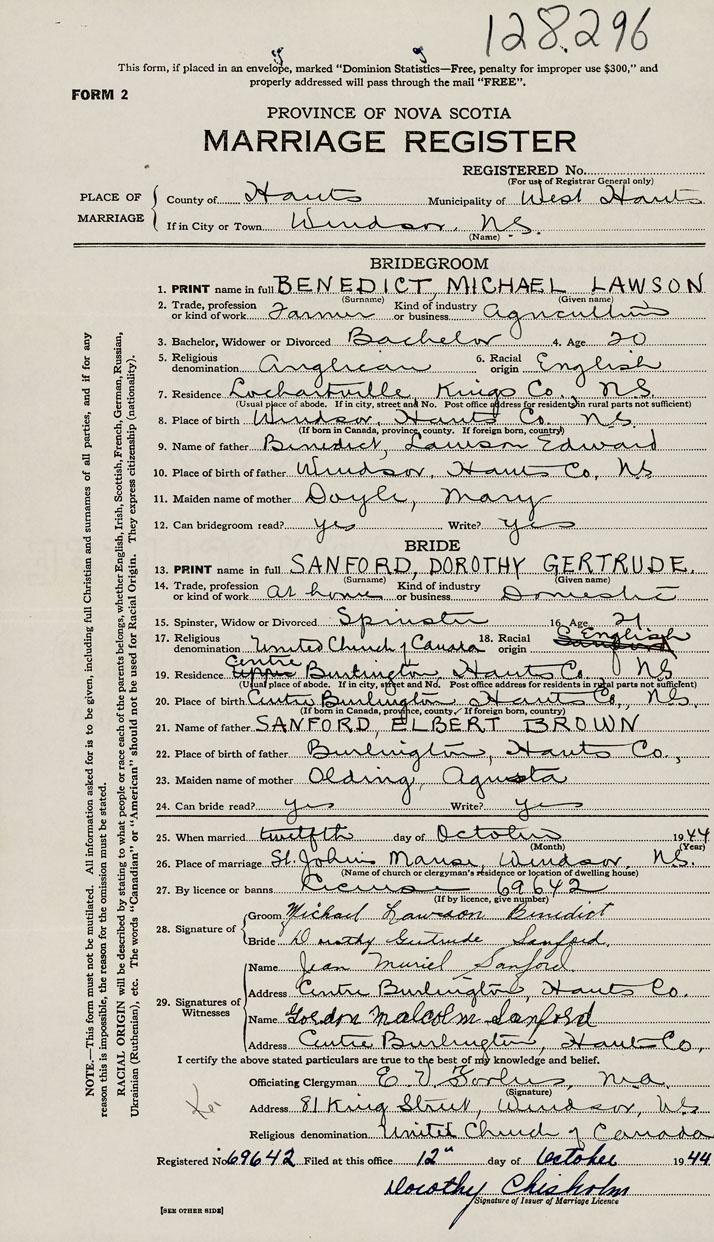 128.296
This form, if placed in an envelope, marked "Dominion Statistics—Free, penalty for improper use $300," and
properly addressed will pass through the mail "FREE".
FORM 2
PROVINCE OF NOVA SCOTIA
MARRIAGE REGISTER
REGISTERED No.
(For use of Registrar General only)
PLACE OF MARRIAGE
County of Hants Municipality of West Hants
If in City or Town Windsor, N.S.
(Name)
BRIDEGROOM
1. PRINT name in full BENEDICT, MICHAEL LAWSON
(Surname) (Given name)
2. Trade, profession or kind of work Farmer Kind of industry or business Agriculture
3. Bachelor, Widower or Divorced Bachelor 4. Age 20
5. Religious denomination Anglican 6. Racial origin English
7. Residence Lochartville, Kings Co., NS
(Usual place of abode. If in city, street and No. Post office address for residents in rural parts not sufficient)
8. Place of birth Windsor, Hants Co. N.S.
(If born in Canada, province, county. If foreign born, country)
9. Name of father Benedict, Lawson Edward
10. Place of birth of father Windsor, Hants Co, NS
11. Maiden name of mother Doyle, Mary
12. Can bridegroom read? yes Write? yes
BRIDE
13. PRINT name in full SANFORD, DOROTHY GERTRUDE.
(Surname) (Given name)
14. Trade, profession or kind of work at home Kind of industry or business Domestic
15. Spinster, Widow or Divorced Spinster 16. Age 21
17. Religious denomination United Church of Canada 18. Racial origin English
19. Residence Centre Burlington, Hants Co., NS
(Usual place of abode. If in city, street and No. Post office address for residents in rural parts not sufficient)
20. Place of birth Centre Burlington, Hants Co., NS.
(If born in Canada, province, county. If foreign born, country)
21. Name of father SANFORD, ELBERT BROWN
22. Place of birth of father Burlington, Hants Co.,
23. Maiden name of mother Olding, Agusta
24. Can bride read? yes Write? yes
25. When married twelfth day of October 1944
(Month) (Year)
26. Place of marriage St. John's Manse, Windsor, NS.
(Name of church or clergyman's residence or location of dwelling house)
27. By licence or banns License 69642
(If by licence, give number)
28. Signature of
Groom Michael Lawson Benedict
Bride Dorothy Gertrude Sanford.
29. Signatures of Witnesses
Name Jean Muriel Sanford
Address Centre Burlington, Hants Co.
Name Gordon Malcolm Sanford
Address Centre Burlington, Hants Co.,
I certify the above stated particulars are true to the best of my knowledge and belief.
Officiating Clergyman E. V. M.A.
(Signature)
Address 81 King Street, Windsor, NS
Religious denomination United Church of Canada
Registered No. 69642 Filed at this office 12th day of October 1944
Dorothy Chisholm
Signature of Issuer of Marriage Licence
[SEE OTHER SIDE]
NOTE.—This form must not be mutilated. All information asked for is to be given, including full Christian and surnames of all parties, and if for any
reason this is impossible, the reason for the omission must be stated.
RACIAL ORIGIN will be described by stating to what people or race each of the parents belongs, whether English, Irish, Scottish, French, German, Russian,
Ukrainian (Ruthenian), etc. The words "Canadian" or "American" should not be used for Racial Origin. They express citizenship (nationality).